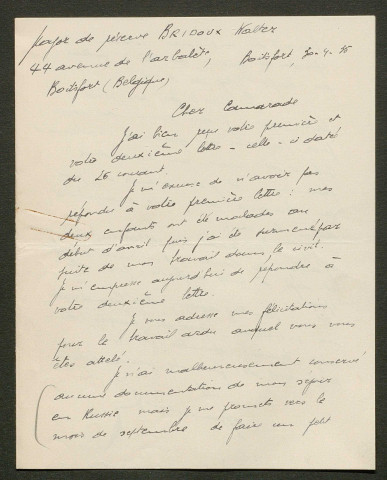 Major de réserve BRIDOUX Walter
44 avenue de l'arbalète, Boitsfort, 30-4-75
Boitsfort (Belgique)
Cher Camarade
J'ai bien reçu votre première et
votre deuxième lettre - celle-ci daté
du 26 courant.
Je m'excuse de n'avoir pas
répondu à votre première lettre : mes
deux enfants ont été malades au
début d'avril puis j'ai été surmené par
suite de mon travail dans le civil.
Je m'empresse aujourd'hui de répondre à
votre deuxième lettre.
Je vous adresse mes félicitations
pour le travail ardu auquel vous vous
êtes attelé.
Je n'ai malheureusement conservé
aucune documentation de mon séjour
en Russie mais je me promets vers le
mois de septembre de faire un petit